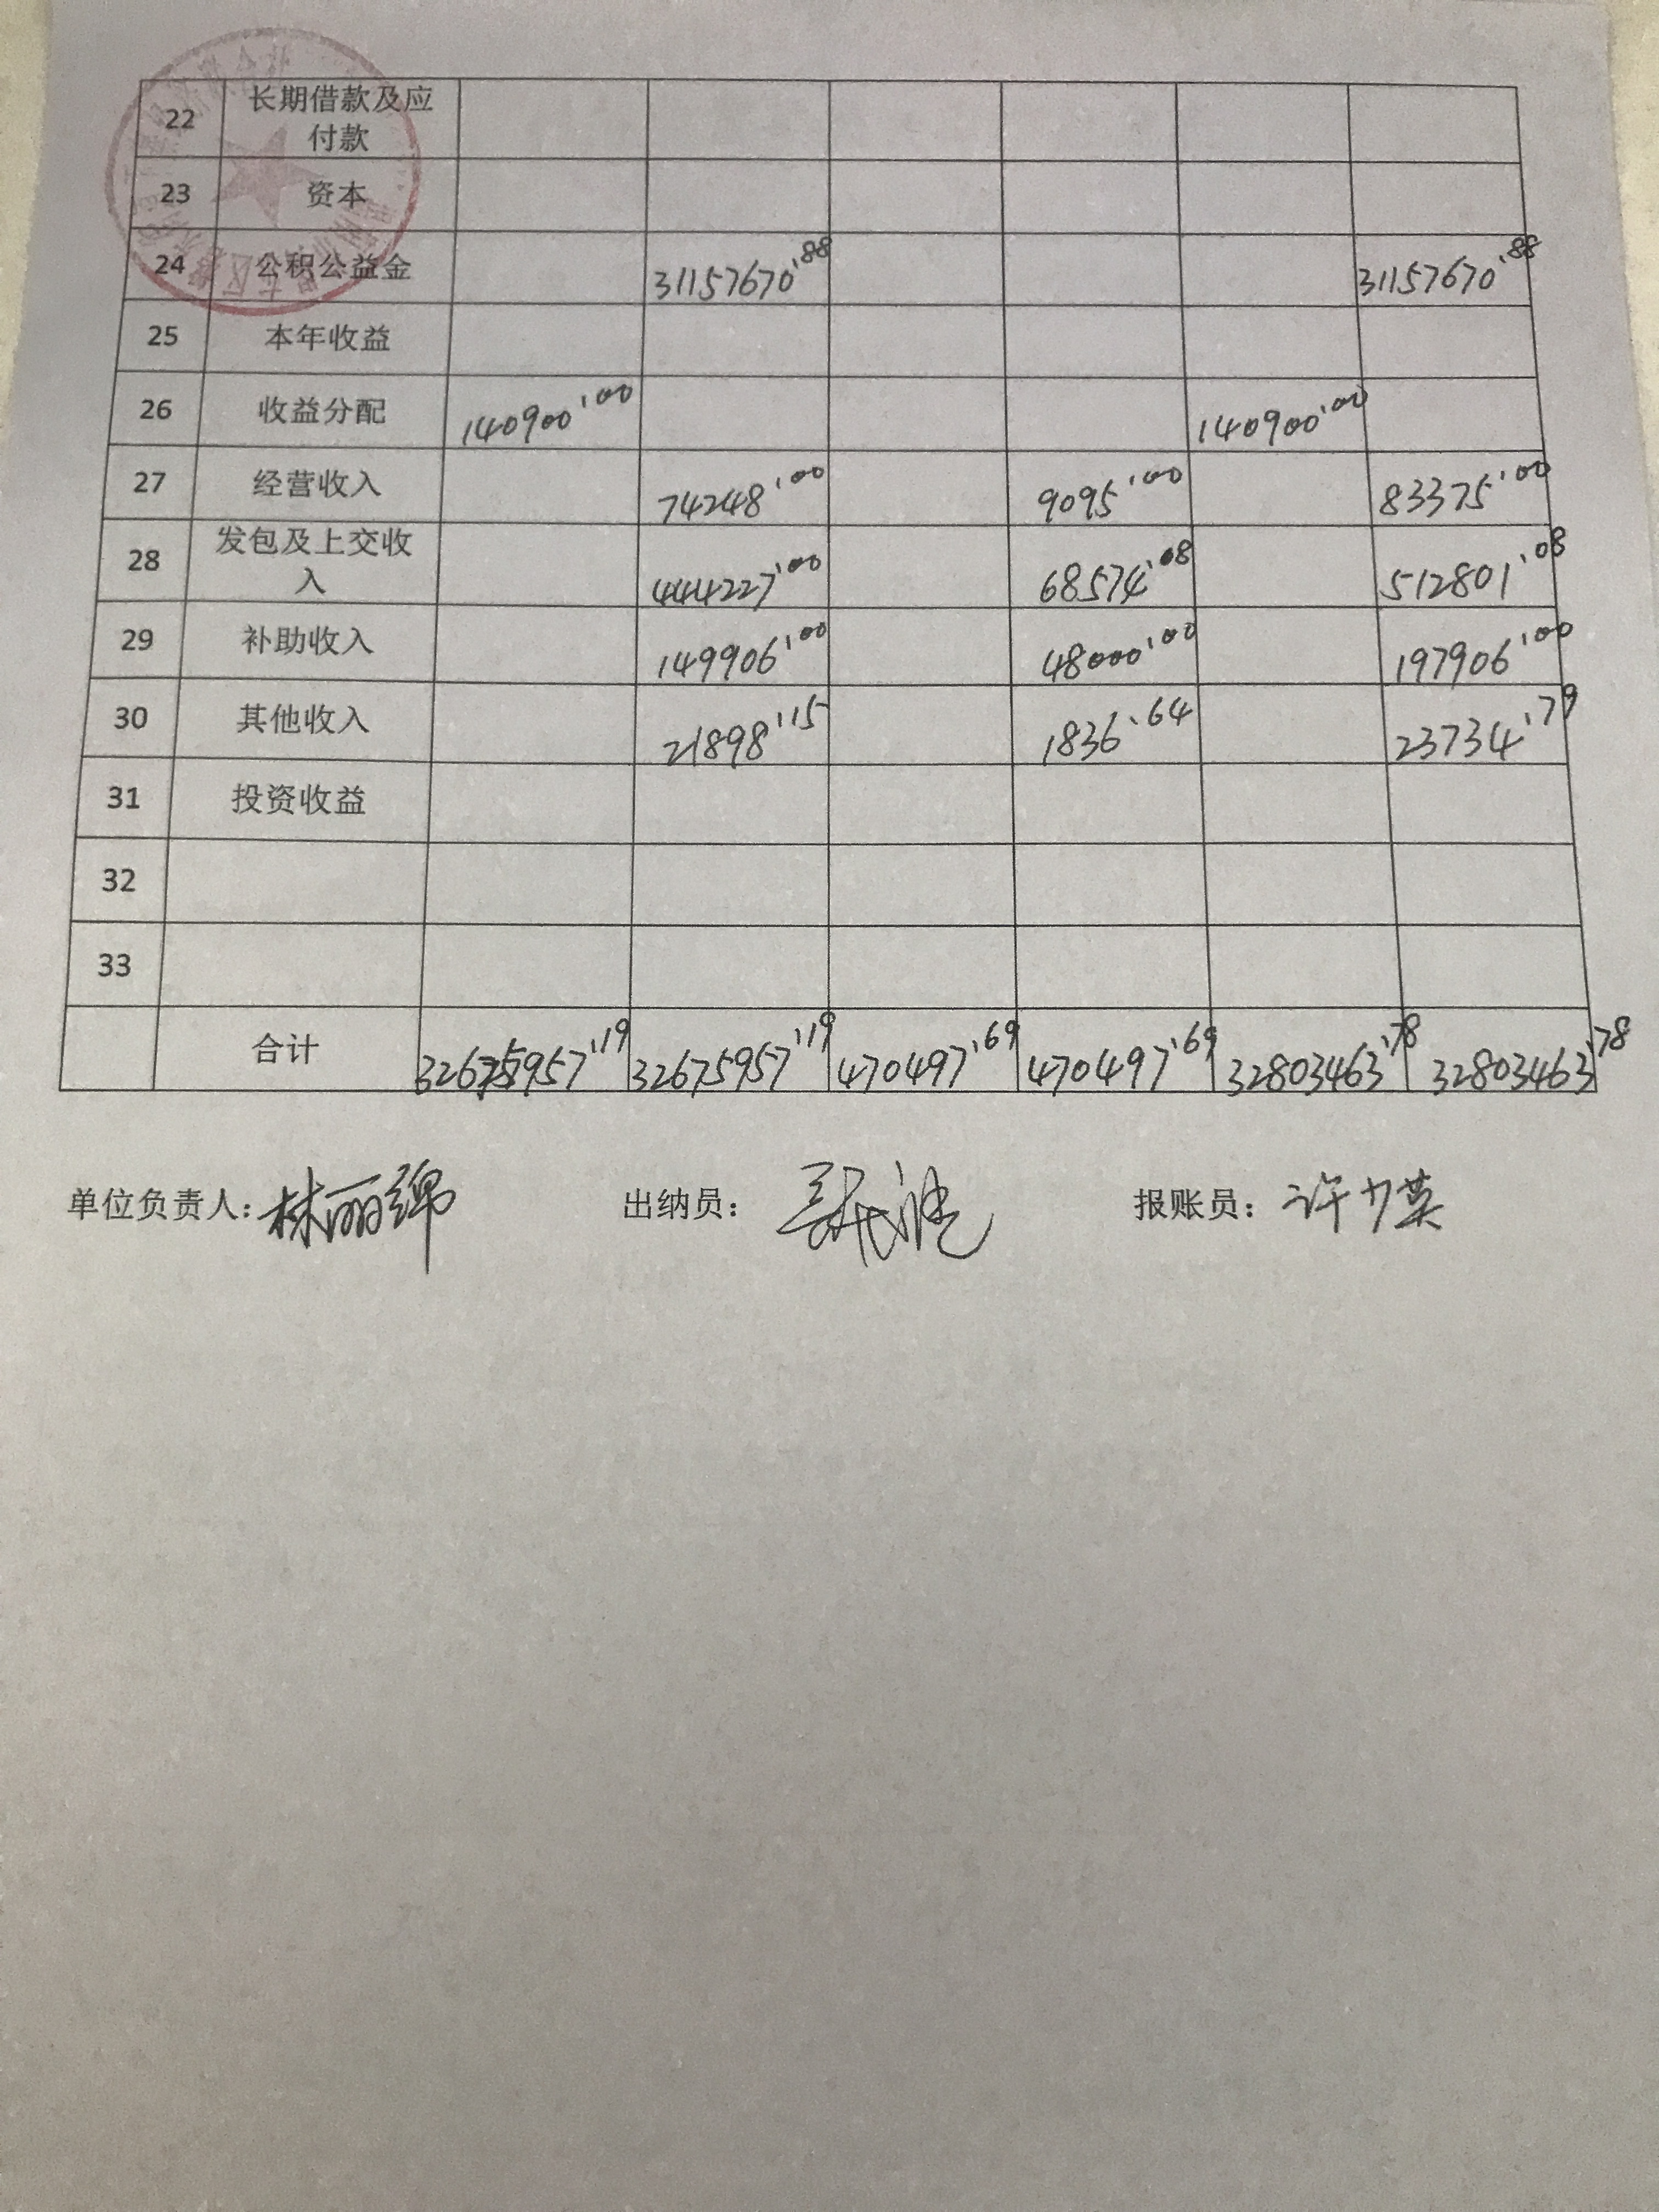 22 长期借款及应
付款
23 资本
24 公积公益金 31157670.88 31157670.88
25 本年收益
26 收益分配 140900.00 140900.00
27 经营收入 74248.00 9095.00 83375.00
28 发包及上交收
入 444227.00 68574.08 512801.08
29 补助收入 149906.00 48000.00 197906.00
30 其他收入 21898.15 1836.64 23734.79
31 投资收益
32
33
合计 32675957.19 32675957.19 470497.69 470497.69 32803463.78 32803463.78
单位负责人：林丽绵 出纳员： 报账员：许少英